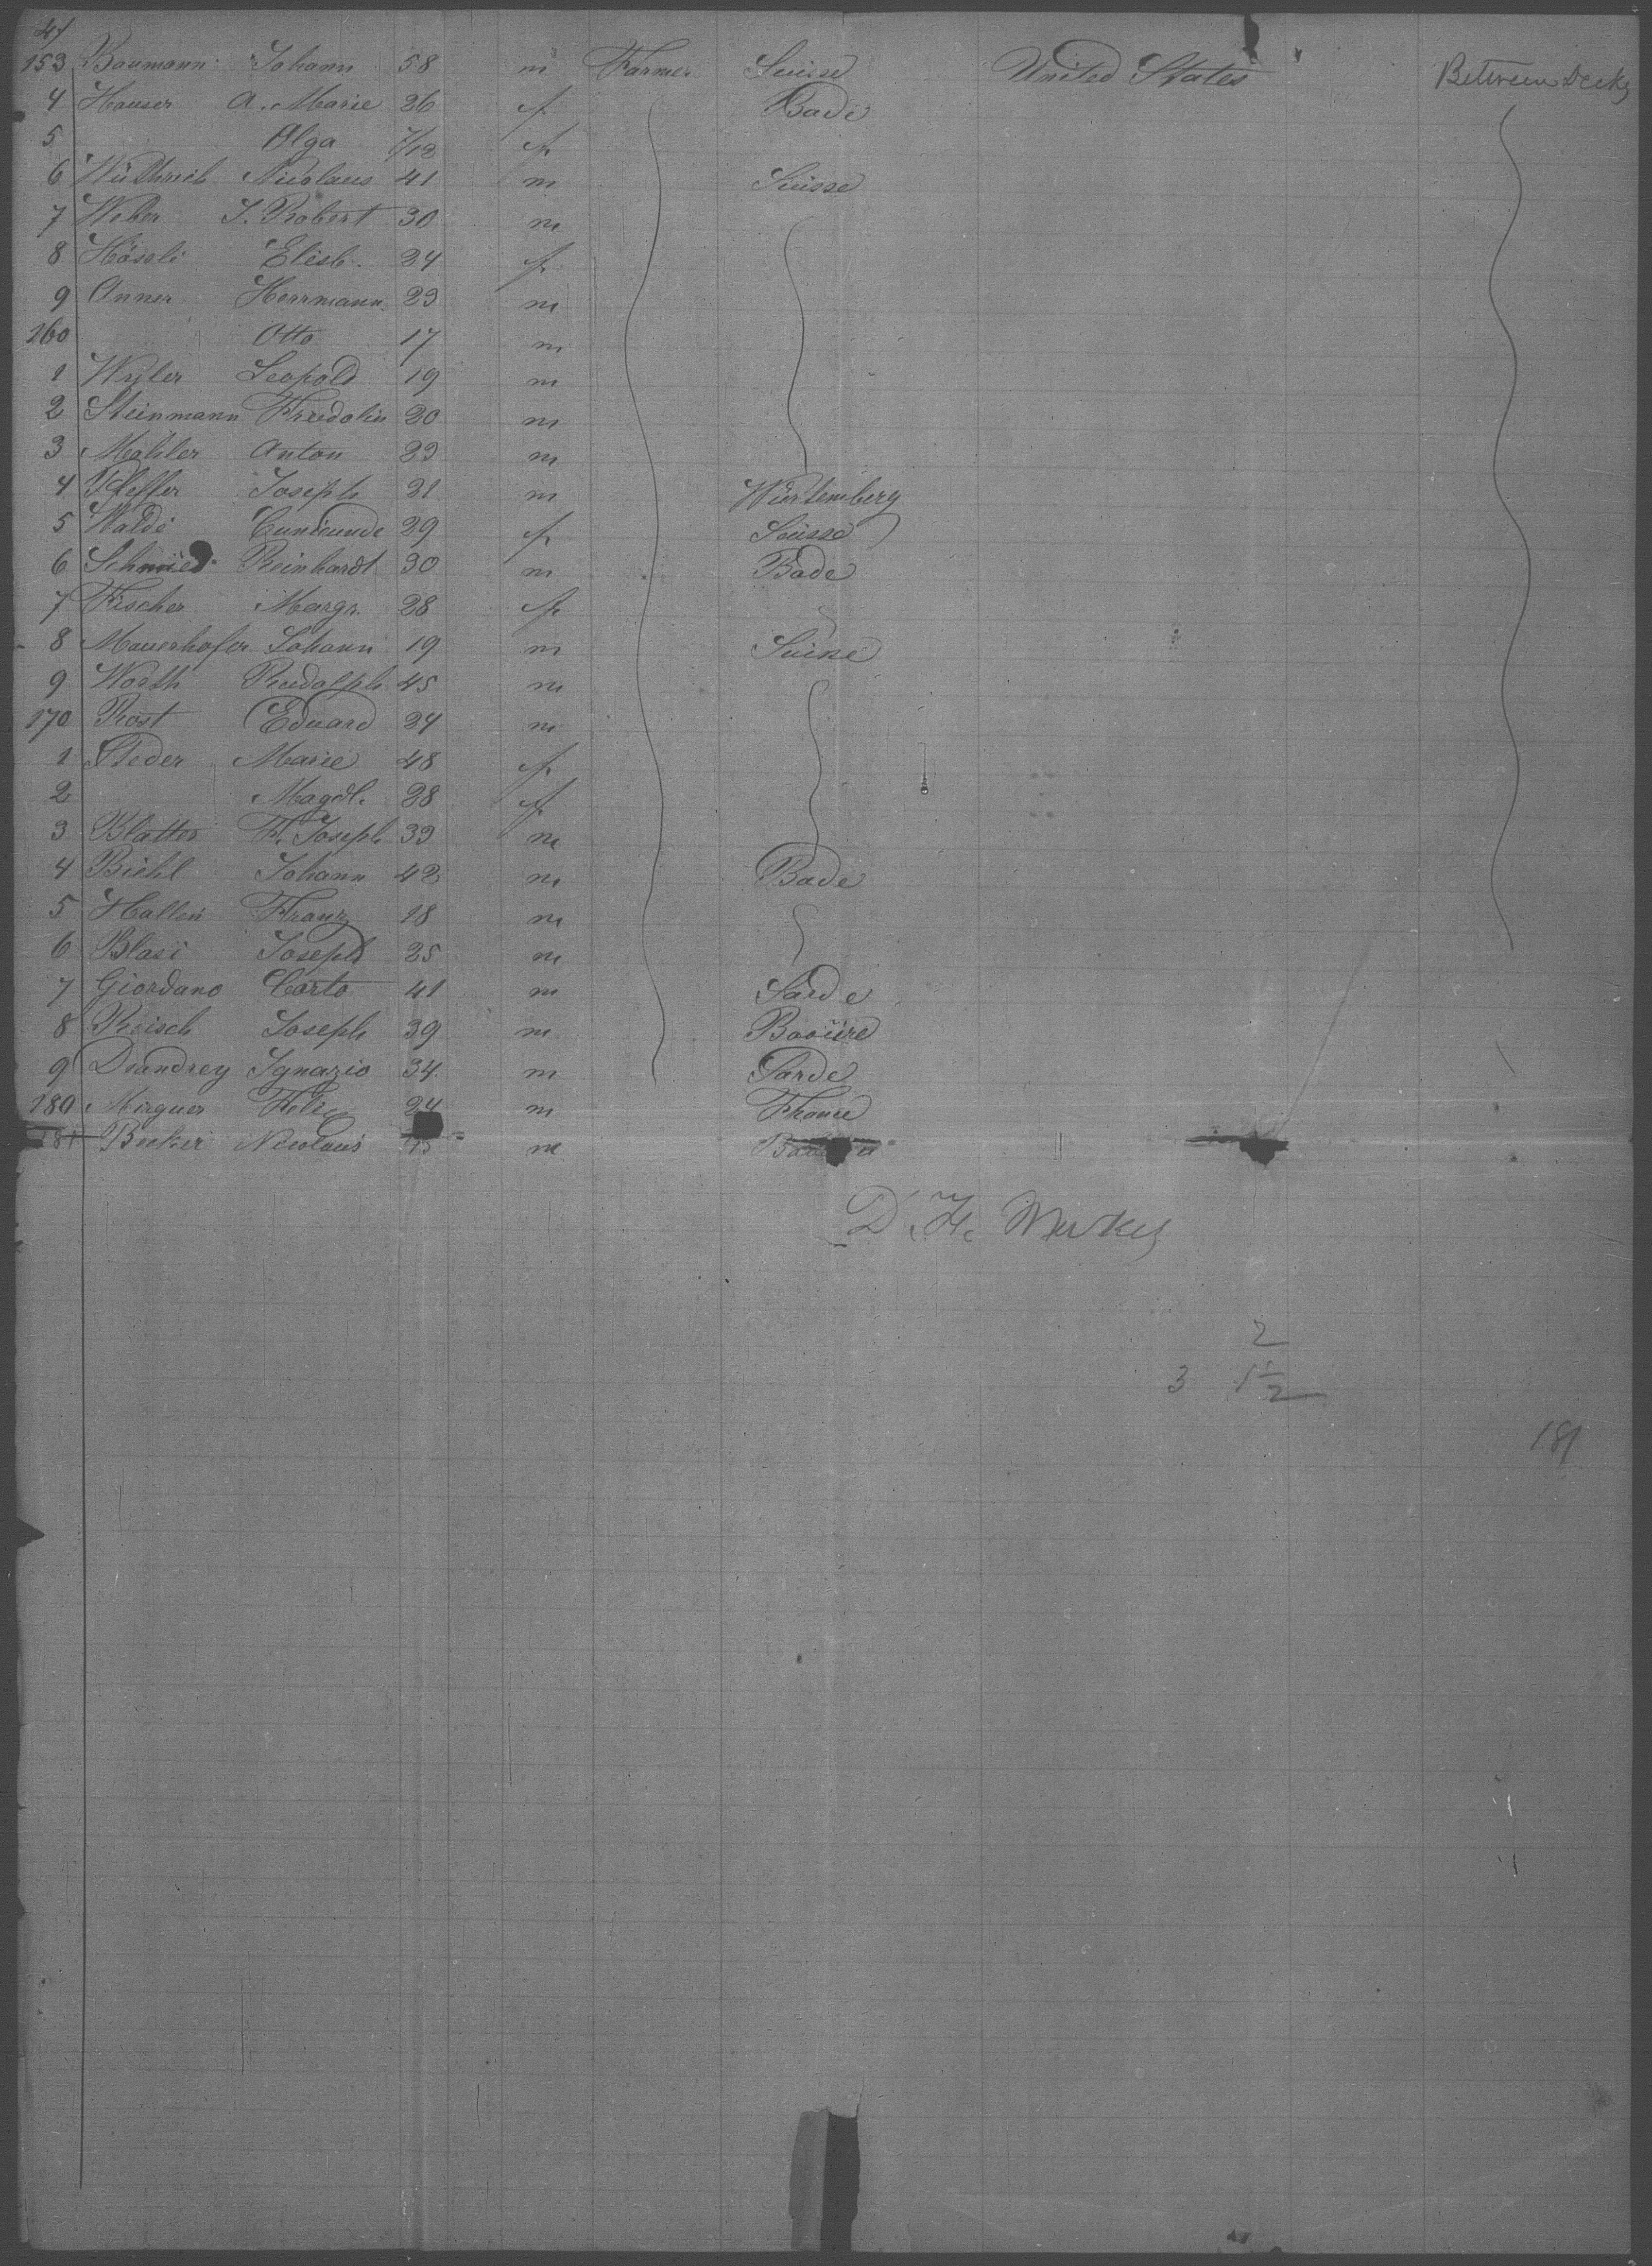 4/
153 Baumann Johann 58 m Farmer Suisse United States Between Decks
4 Hauser A. Marie 26 f. Bade
5 Olga 7/12 f.
6 Wüthrich Nicolaus 41 m Suisse
7 Weber J. Robert 30 m
8 Hössli Elisb. 24 f.
9 Anner Herrmann 23 m
160 Otto 17 m
1 Wyler Leopold 19 m
2 Steinmann Friedolin 20 m
3 Mahler Anton 23 m
4 Pfeffer Joseph 21 m Würtemberg
5 Waldi Cunicunde 29 f. Suisse
6 Schmied Reinhardt 30 m Bade
7 Fischer Margr. 28 f.
8 Mauerhofer Johann 19 m Suisse
9 Worth Rudolph 45 m
170 Rost Eduard 24 m
1 Steder Marie 48 f.
2 Magdl. 28 f.
3 Blatter F. Joseph 33 m
4 Biehl Johann 42 m Bade
5 Haller Franz 18 m
6 Blasi Joseph 25 m
7 Giordano Carlo 41 m Sarde
8 Reisch Joseph 39 m Bavière
9 Dsandrey Ignazio 34 m Sarde
180 Mirguer Felix 24 m France
181 Becker Nicolaus m
D. H.
2
3 1 1/2
181